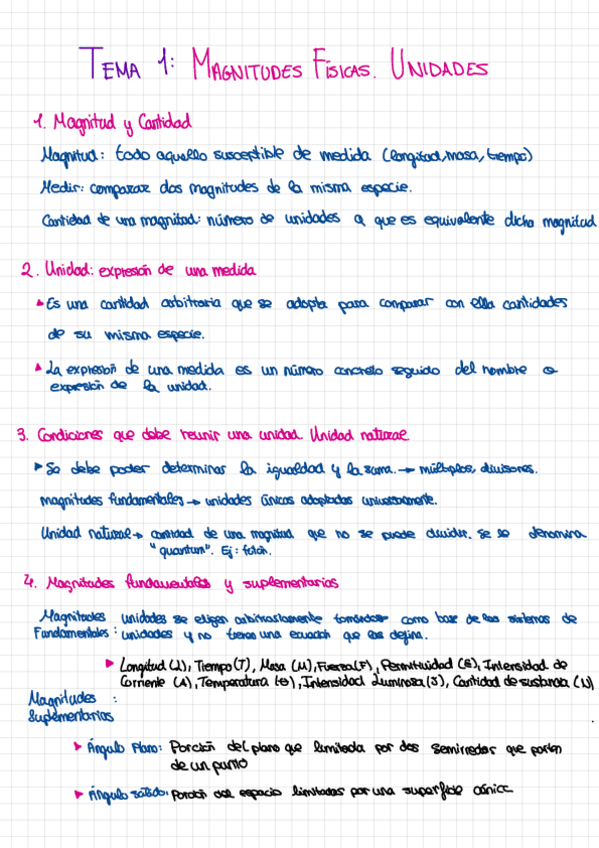 TEMA 1: MAGNITUDES FÍSICAS. UNIDADES
1. Magnitud y Cantidad
Magnitud: todo aquello susceptible de medida (longitud, masa, tiempo)
Medir: comparar dos magnitudes de la misma especie.
Cantidad de una magnitud: número de unidades a que es equivalente dicha magnitud
2. Unidad: expresión de una medida
▸ Es una cantidad arbitraria que se adopta para comparar con ella cantidades
de su misma especie.
▸ La expresión de una medida es un número concreto seguido del nombre o
expresión de la unidad.
3. Condiciones que debe reunir una unidad. Unidad natural.
▸ Se debe poder determinar la igualdad y la suma. → múltiplos, divisores.
magnitudes fundamentales → unidades únicas adoptadas universalmente.
Unidad natural → cantidad de una magnitud que no se puede dividir. Se le denomina
"quantum". Ej: fotón.
4. Magnitudes fundamentales y suplementarias
Magnitudes unidades se eligen arbitrariamente tomándose como base de los sistemas de
Fundamentales: unidades y no tienen una ecuación que las defina.
▸ Longitud (L), Tiempo (T), Masa (M), Fuerza (F), Permitividad (ε), Intensidad de
Corriente (A), Temperatura (θ), Intensidad Luminosa (J), Cantidad de sustancia (N)
Magnitudes :
Suplementarias
▸ Ángulo Plano: Porción del plano que limitada por dos semirrectas que parten
de un punto
▸ Ángulo sólido: porción del espacio limitadas por una superficie cónica